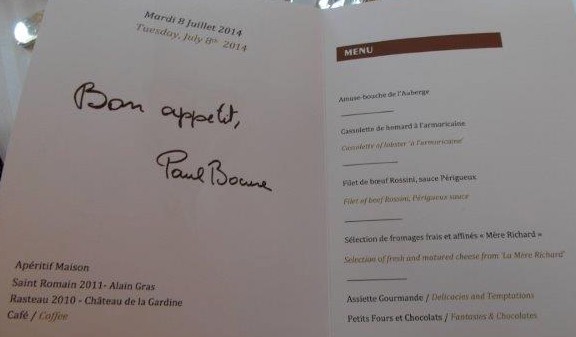 Mardi 8 Juillet 2014
Tuesday, July 8th 2014
Bon appetit,
Paul Bocuse
Apéritif Maison
Saint Romain 2011- Alain Gras
Rasteau 2010 - Château de la Gardine
Café / Coffee
MENU
Amuse-bouche de l'Auberge
Cassolette de homard à l'armoricaine
Cassolette of lobster 'à l'armoricaine'
Filet de bœuf Rossini, sauce Périgueux
Filet of beef Rossini, Périgueux sauce
Sélection de fromages frais et affinés « Mère Richard »
Selection of fresh and matured cheese from 'La Mère Richard'
Assiette Gourmande / Delicacies and Temptations
Petits Fours et Chocolats / Fantasies & Chocolates